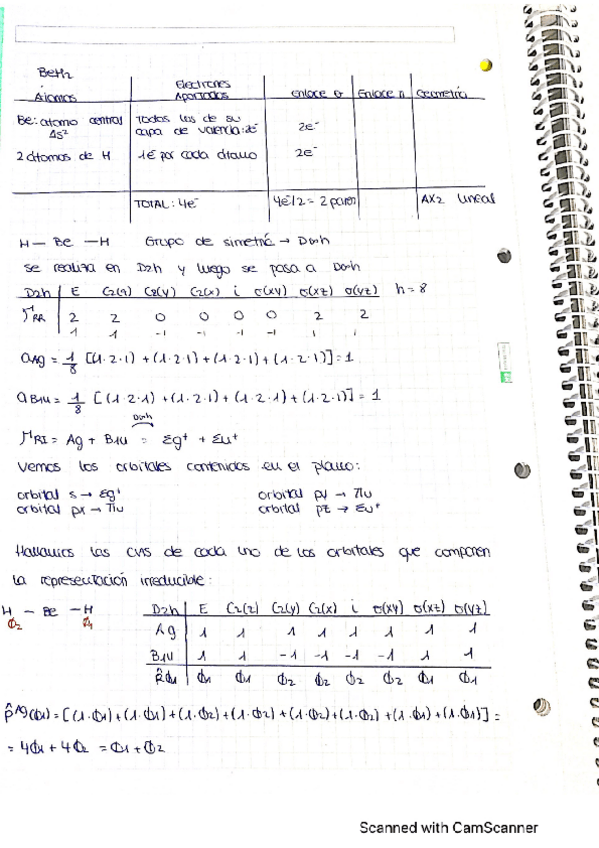 BeH2
Átomos | Electrones Aportados | Enlace σ | Enlace π | Geometría
Be: átomo central 2s² | Todos los de su capa de valencia: 2e⁻ | 2e⁻
2 átomos de H | 1e⁻ por cada átomo | 2e⁻
TOTAL: 4e⁻ | 4e⁻/2 = 2 pares | AX2 lineal
H — Be — H Grupo de simetría → D∞h
se realiza en D2h y luego se pasa a D∞h
D2h | E C2(z) C2(y) C2(x) i σ(xy) σ(xz) σ(yz) h = 8
ΓRR | 2 2 0 0 0 0 2 2
1 1 -1 -1 -1 -1 1 1
aAg = 1/8 [(1·2·1) + (1·2·1) + (1·2·1) + (1·2·1)] = 1
aB1u = 1/8 [(1·2·1) + (1·2·1) + (1·2·1) + (1·2·1)] = 1
D∞h
ΓRI = Ag + B1u = Σg⁺ + Σu⁺
Vemos los orbitales contenidos en el plano:
orbital s → Σg⁺ orbital py → Πu
orbital px → Πu orbital pz → Σu⁺
Hallamos las CLAS de cada uno de los orbitales que componen
la representación irreducible:
H — Be — H D2h | E C2(z) C2(y) C2(x) i σ(xy) σ(xz) σ(yz)
Φ2 Φ1
Ag | 1 1 1 1 1 1 1 1
B1u | 1 1 -1 -1 -1 -1 1 1
R̂Φ1 | Φ1 Φ1 Φ2 Φ2 Φ2 Φ2 Φ1 Φ1
P̂Ag(Φ1) = [(1·Φ1) + (1·Φ1) + (1·Φ2) + (1·Φ2) + (1·Φ2) + (1·Φ2) + (1·Φ1) + (1·Φ1)] =
= 4Φ1 + 4Φ2 = Φ1 + Φ2
Scanned with CamScanner